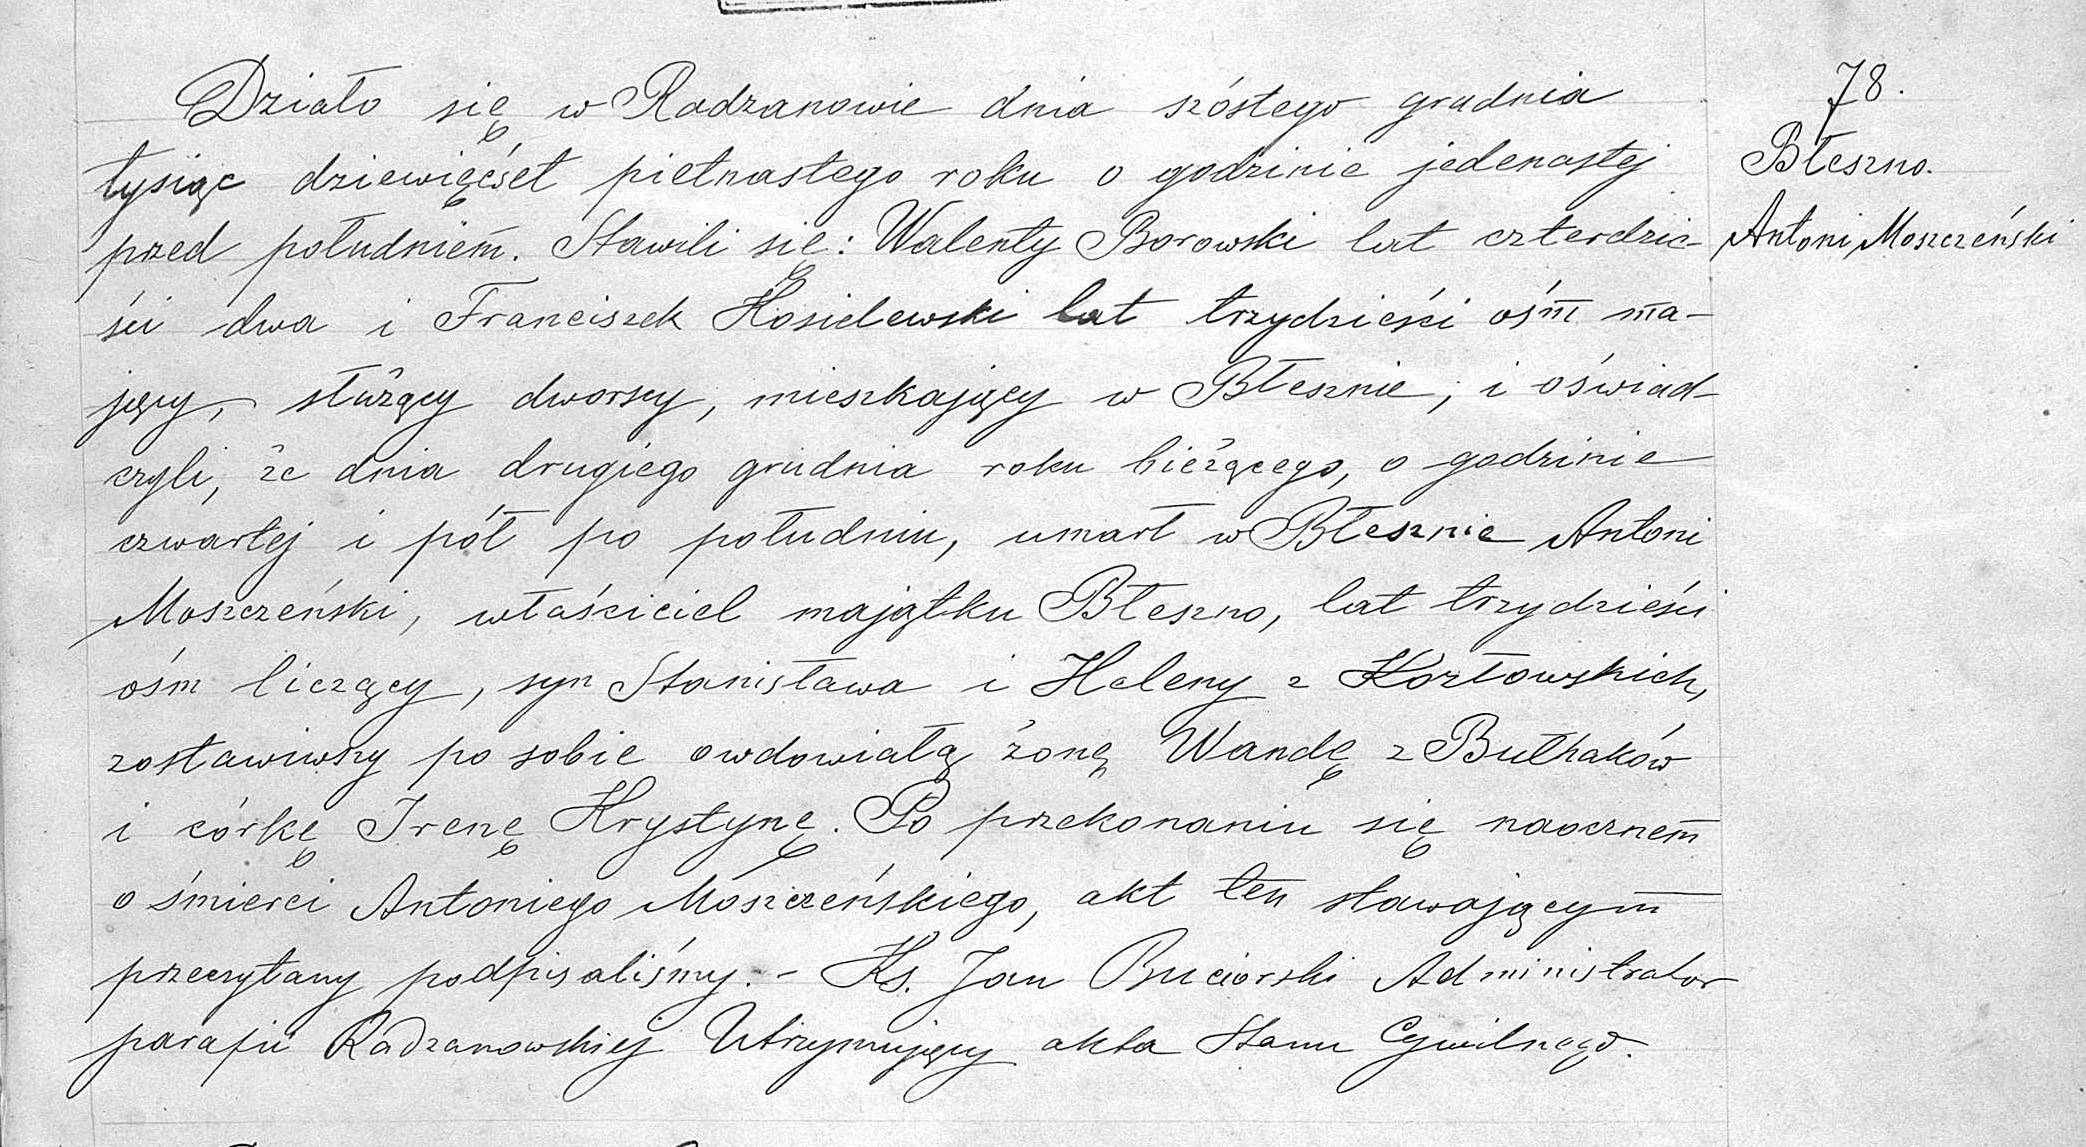 Działo się w Radzanowie dnia szóstego grudnia
78.
tysiąc dziewięćset pietnastego roku o godzinie jedenastej
Błeszno.
przed południem. Stawili się: Walenty Borowski lat czterdzie-
Antoni Moszczeński
ści dwa i Franciszek Kosielewski lat trzydzieści ośm ma-
jący, służący dworscy, mieszkający w Błesznie, i oświad-
czyli, że dnia drugiego grudnia roku bieżącego, o godzinie
czwartej i pół po południu, umarł w Błesznie Antoni
Moszczeński, właściciel majątku Błeszno, lat trzydzieści
ośm liczący, syn Stanisława i Heleny z Kozłowskich,
zostawiwszy po sobie owdowiałą żonę Wandę z Bułhaków
i córkę Irenę Krystynę. Po przekonaniu się naocznem
o śmierci Antoniego Moszczeńskiego, akt ten stawającym
przeczytany podpisaliśmy. - Ks. Jan Buciorski Administrator
parafii Radzanowskiej Utrzymujący akta Stanu Cywilnego.